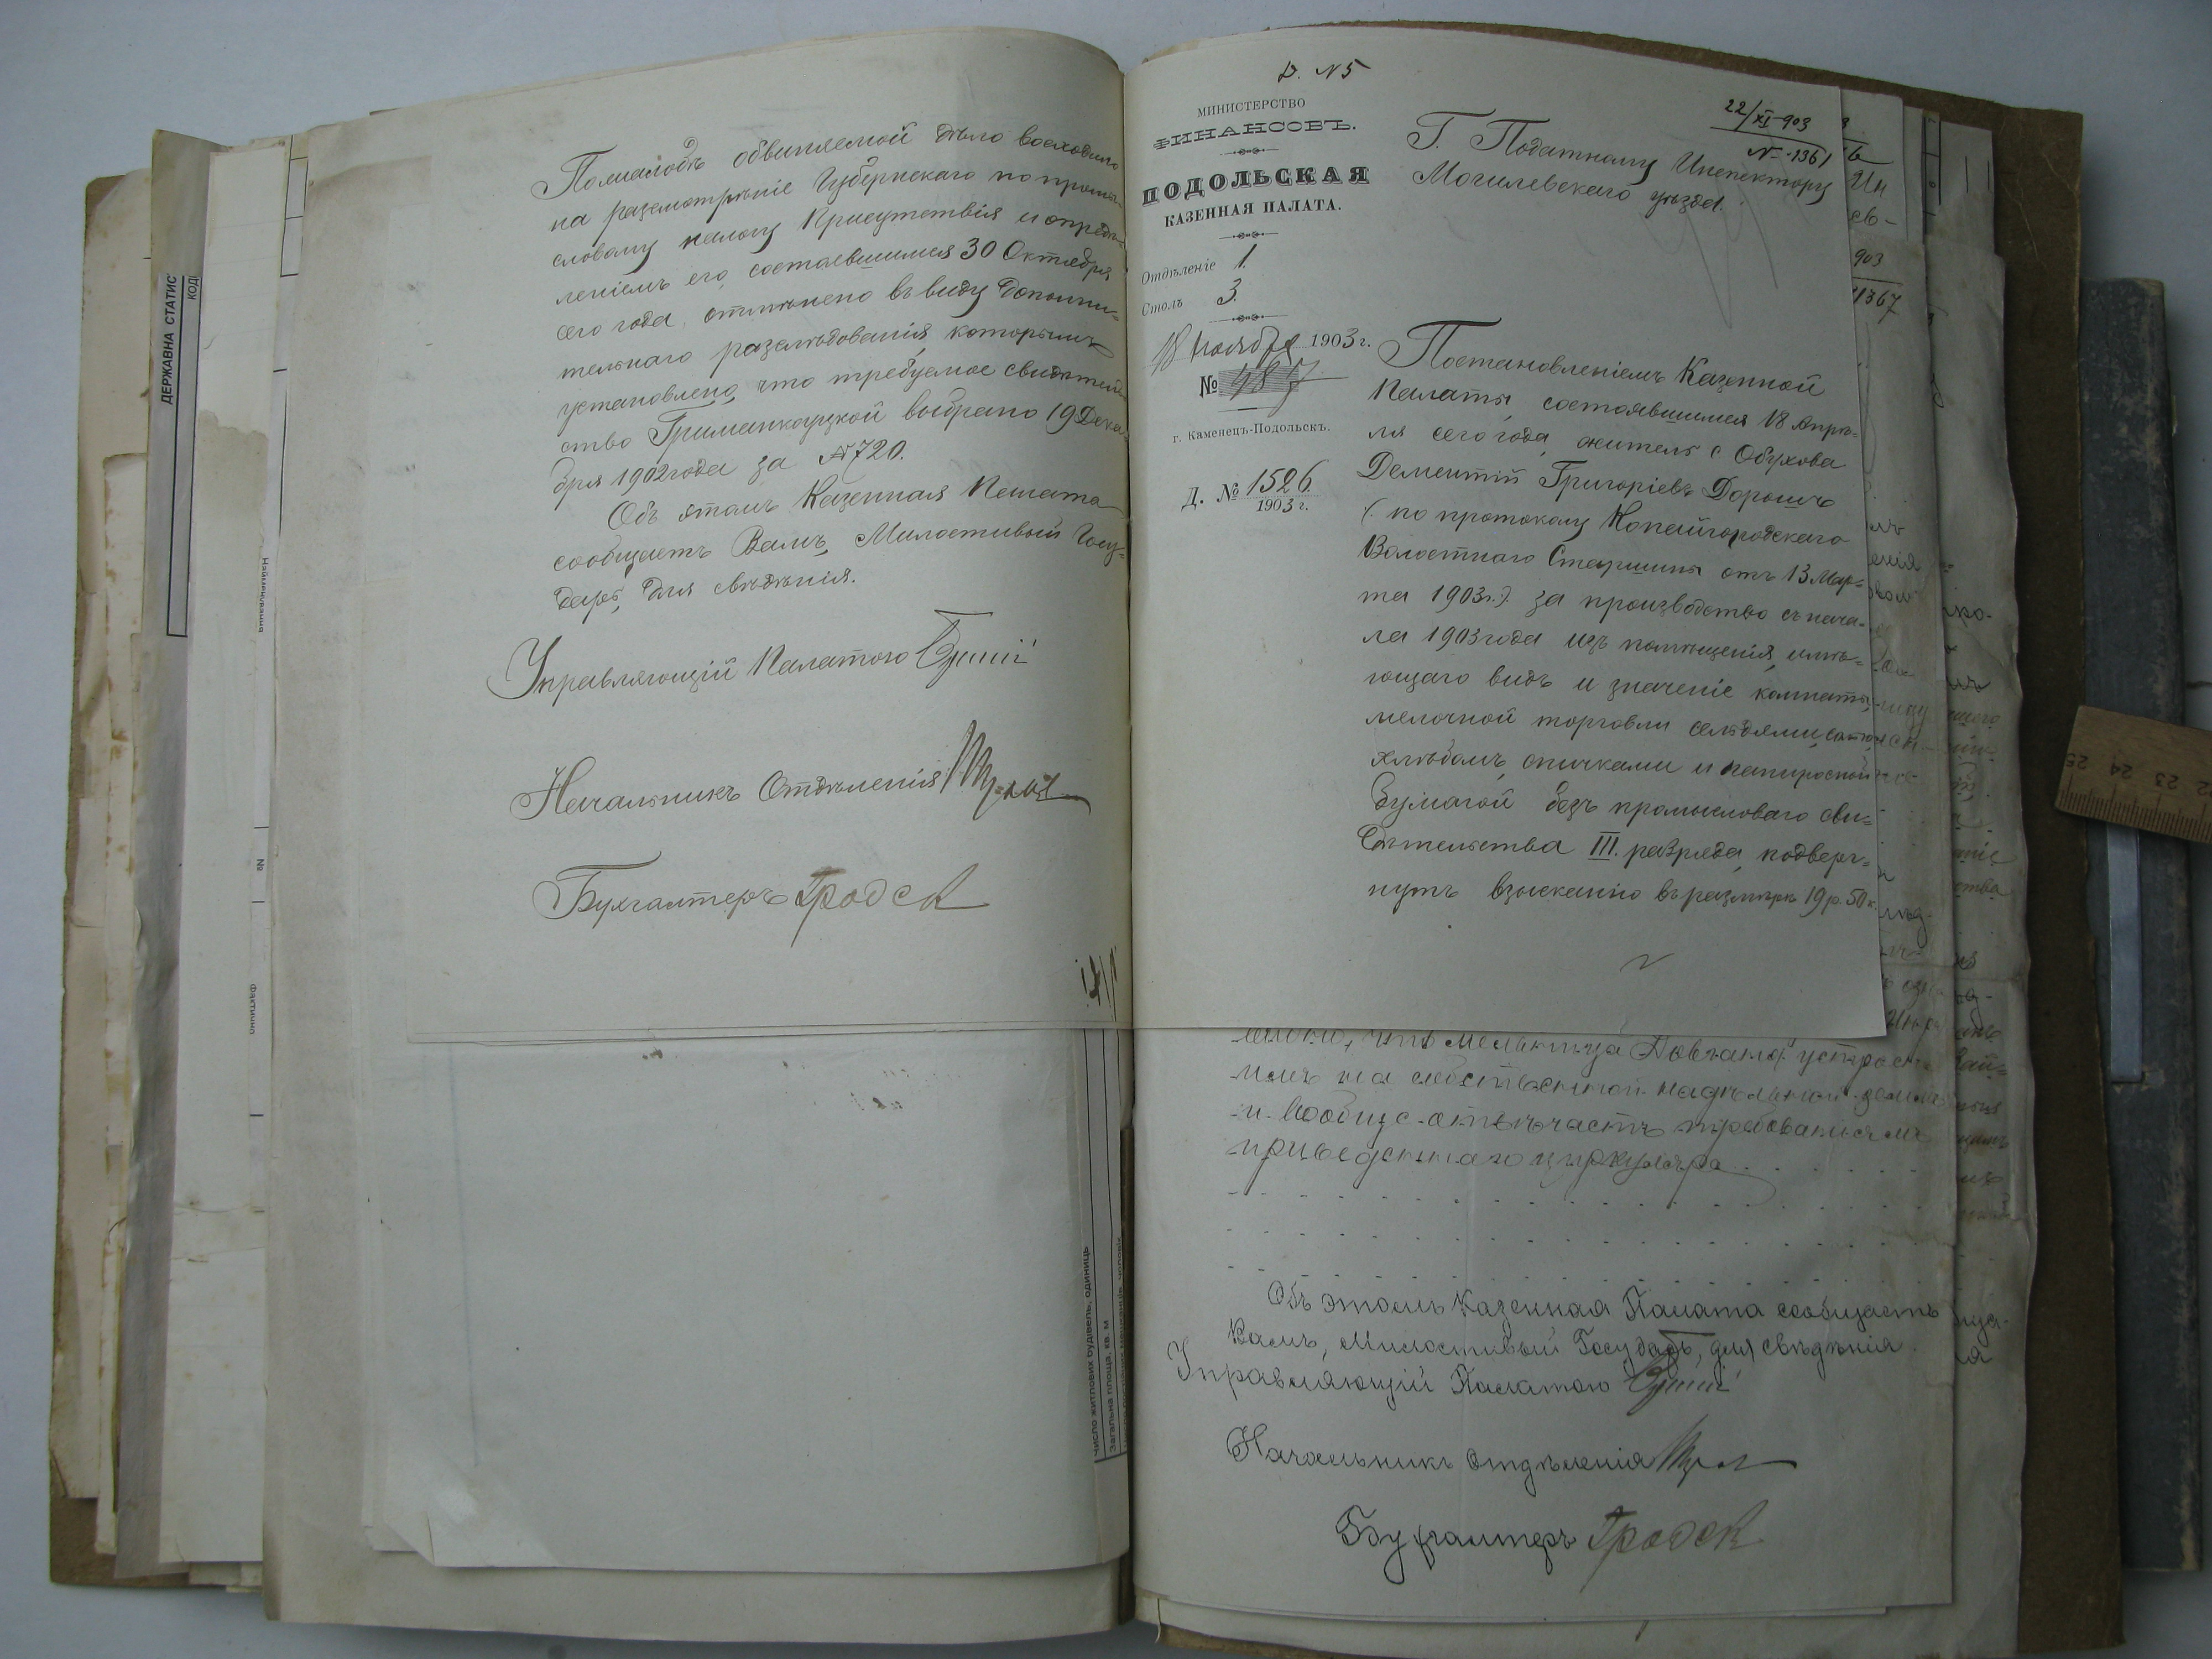 По жалобѣ обвиняемой дѣло восходило
на разсмотрѣніе Губернскаго по промы-
словому налогу Присутствія и опредѣ-
леніемъ его, состоявшимся 30 Октября
сего года, отмѣнено въ виду дополни-
тельнаго разслѣдованія, которымъ
установлено, что требуемое свидѣтель-
ство Гриманкоуцкой выбрано 19 Дека-
бря 1902 года за № 720.
Объ этомъ Казенная Палата
сообщаетъ Вамъ, Милостивый Госу-
дарь, для свѣдѣнія.
Управляющій Палатою
Начальникъ Отдѣленія
Бухгалтеръ
ДЕРЖАВНА СТАТИС
КОД
Найменування
№
Фактично
число житлових будівель, одиниць
Загальна площа, кв. м
Д. №5
МИНИСТЕРСТВО
ФИНАНСОВЪ.
ПОДОЛЬСКАЯ
КАЗЕННАЯ ПАЛАТА.
Отдѣленіе 1.
Столъ 3.
18 Ноября 1903 г.
№ 487
г. Каменецъ-Подольскъ.
Д. № 1526
1903 г.
22/XI 903
№ 1361
Г. Податному Инспектору
Могилевскаго уѣзда.
Постановленіемъ Казенной
Палаты, состоявшимся 18 Апрѣ-
ля сего года, житель с. Обухова
Дементій Григорьевъ Дорошъ
(по протоколу Копайгородскаго
Волостнаго Старшины отъ 13 Мар-
та 1903 г.) за производство съ нача-
ла 1903 года изъ помѣщенія, имѣ-
ющаго видъ и значеніе комнаты,
мелочной торговли сельдями,
хлѣбомъ, спичками и папиросной
бумагой безъ промысловаго сви-
дѣтельства III. разряда, подверг-
нутъ взысканію въ размѣрѣ 19 р. 50 к.
903
1367
что мельница Довганя устрое-
на собственной надѣльной землѣ
и вообще отвѣчаетъ требованіямъ
приведеннаго циркуляра
Объ этомъ Казенная Палата сообщаетъ
Вамъ, Милостивый Государь, для свѣдѣнія.
Управляющій Палатою
Начальникъ Отдѣленія
Бухгалтеръ
25 24 23 22